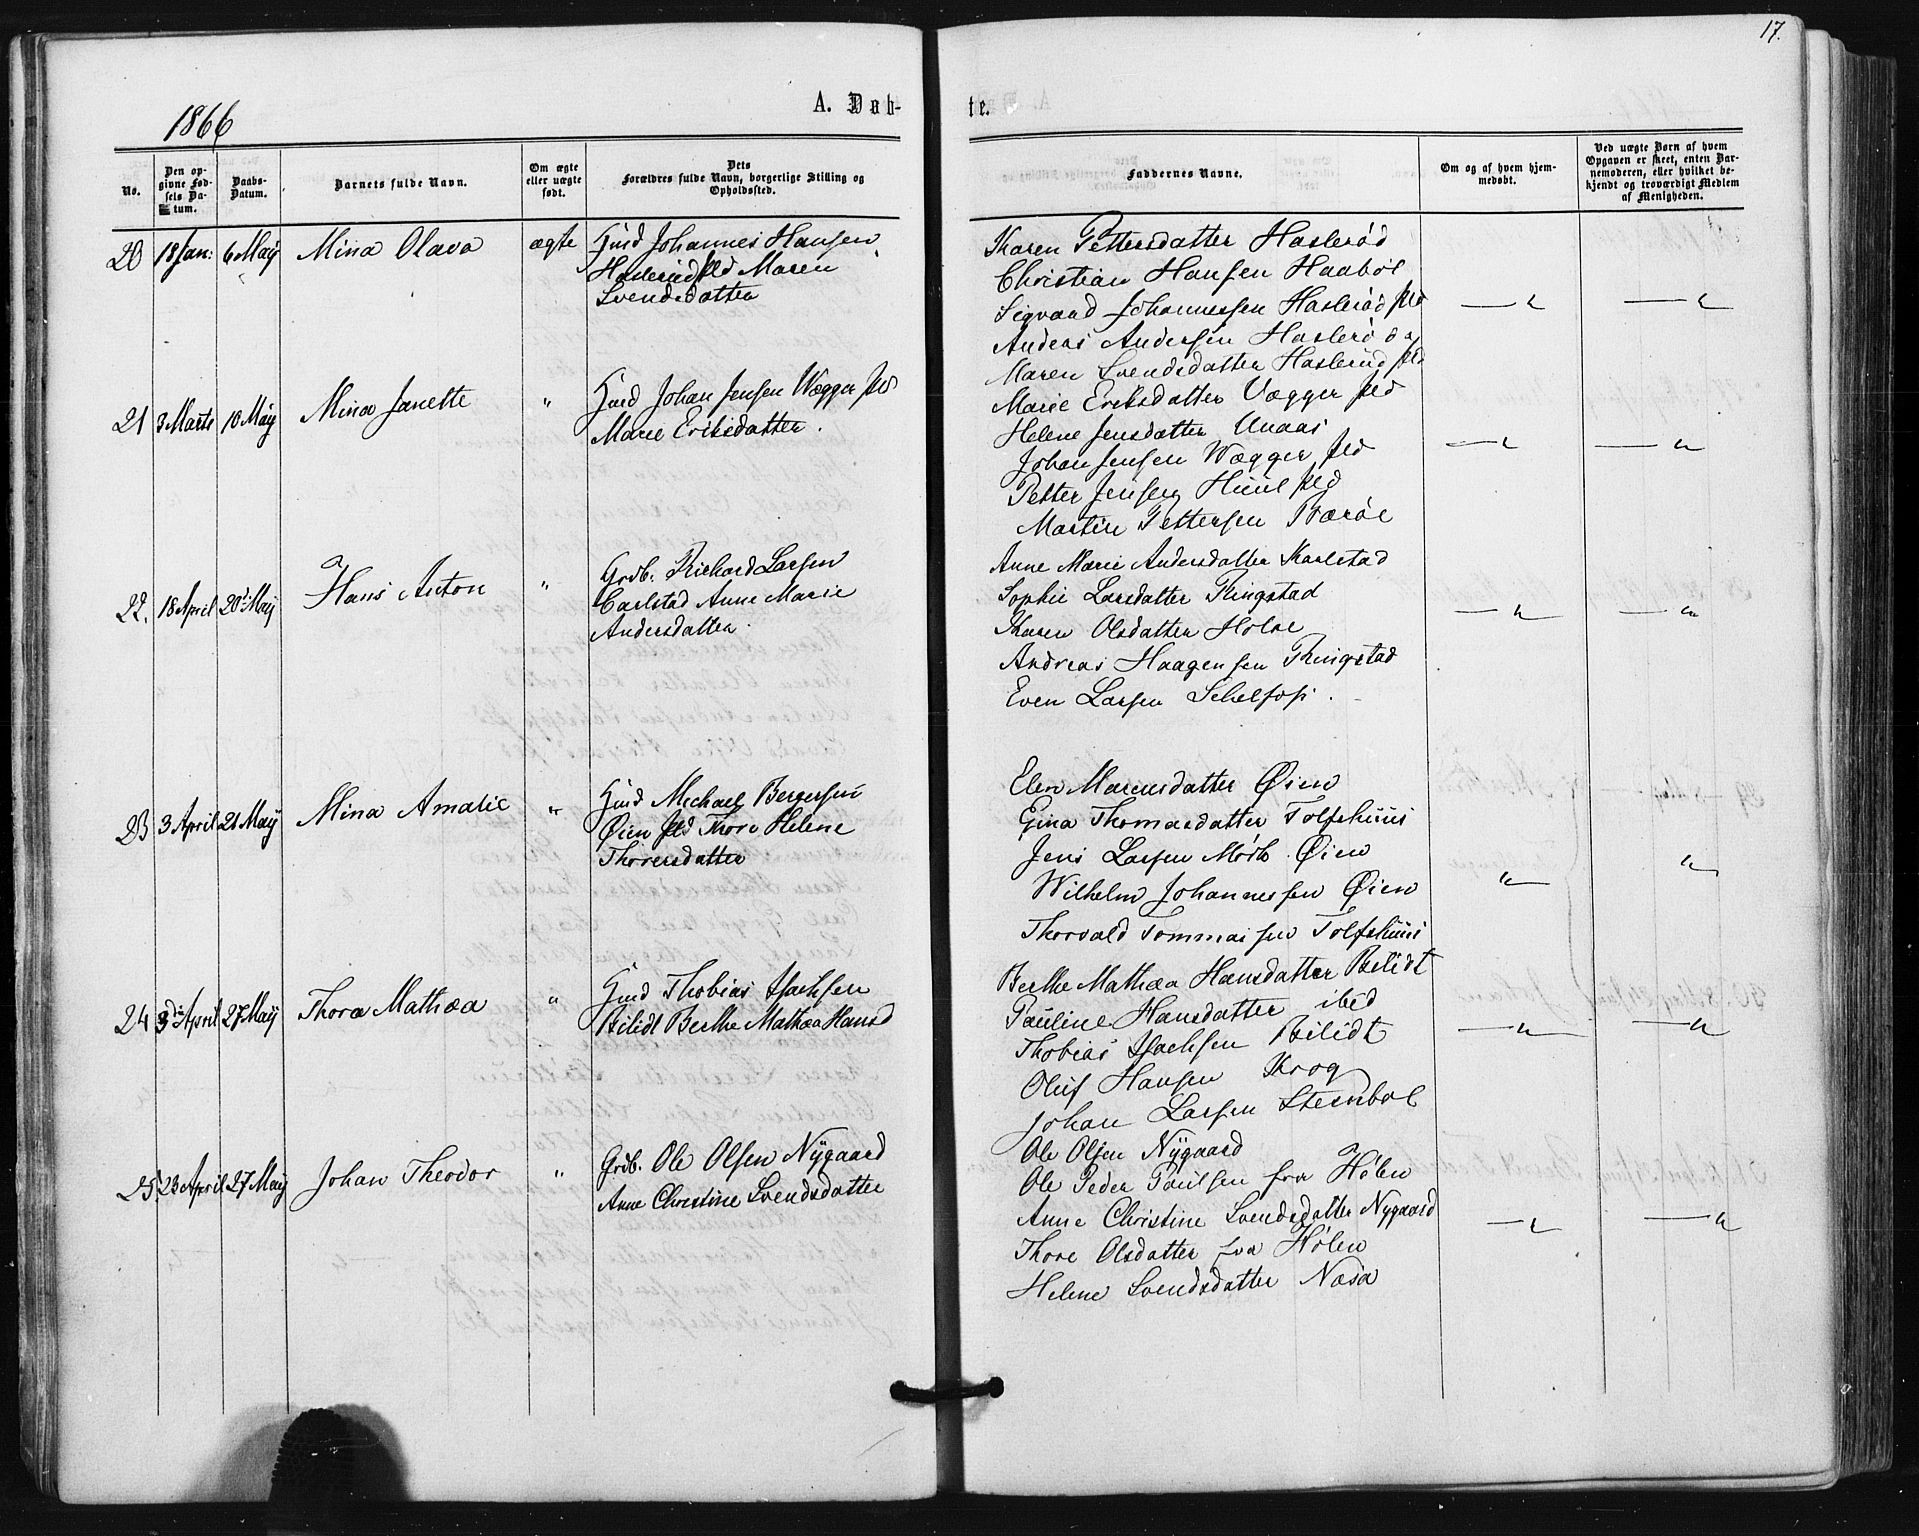 17.
1866
A. Døb-
te.
No.
Den op-
givne Fød-
sels Da-
tum.
Daabs-
Datum.
Barnets fulde Navn.
Om ægte
eller uægte
født.
Dets
Forældres fulde Navn, borgerlige Stilling og
Opholdssted.
Faddernes Navne.
Om og af hvem hjem-
medøbt.
Ved uægte Børn af hvem
Opgaven er skeet, enten Bar-
nemoderen, eller hvilket be-
kjendt og troværdigt Medlem
af Menigheden.
20 18 Jan: 6 May Mina Olava ægte Huusd Johannes Hansen
Haslerud Eld Maren
Svendsdatter
Karen Pettersdatter Haslerød
Christian Hansen Haabøl
Sigvard Johannessen Haslerød Eld
Andeas Andersen Haslerød
Maren Svendsdatter Haslerud Eld
— "
— "
21 3 Marts 10 May Mina Janette " Huusd Johan Jensen Vægger Eld
Marie Eriksdatter.
Marie Eriksdatter Vægger Eld
Helene Jensdatter Unaas
Johan Jensen Vægger Eld
Petter Jensen Huul Eld
Martin Pettersen Barøe
— "
— "
22. 18 April 20 May Hans Anton " Grdb. Richard Larsen
Carlstad Anne Marie
Andersdatter.
Anne Marie Andersdatter Karlstad
Sophie Larsdatter Ringstad
Karen Olsdatter Holøe
Andreas Haagensen Ringstad
Even Larsen Schelfos.
— "
— "
23 3 April 21 May Mina Amalie " Huusd Michael Bergersen
Øien Eld Thore Helene
Thoversdatter
Elen Marcusdatter Øien
Gina Thomasdatter Tolfshuus
Jens Larsen Mørk Øien
Wilhelm Johannessen Øien
Thorvald Tommassen Tolfshuus
"
"
24 3die April 27 May Thora Mathea " Huusd Thobias Isachsen
Bilidt Berthe Mathea Hansd
Berthe Mathea Hansdatter Bilidt
Pauline Hansdatter ibid
Thobias Isachsen Bilidt
Oluf Hansen Krog
Johan Larsen Steenbøl
— "
— "
25 23 April 27 May Johan Theodor " Grdb. Ole Olsen Nygaard
Anne Christine Svendsdatter
Ole Olsen Nygaard
Ole Peder Paulsen fra Hølen
Anne Christine Svendsdatter Nygaard
Thore Olsdatter fra Hølen
Helene Svendsdatter Næsa
— "
— "